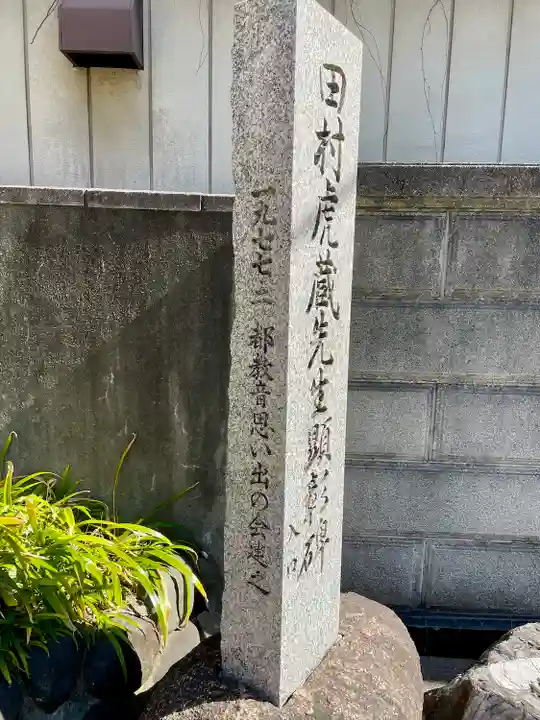 田村虎蔵先生顕彰碑
入口
一九七七・三 都教音思い出の会建之